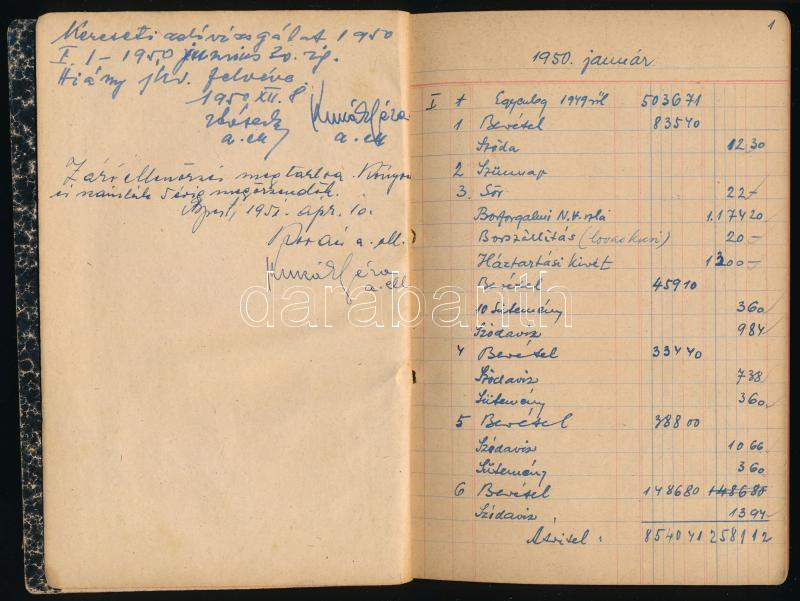 Kereseti adóvizsgálat 1950
I. 1 - 1950 junius 30. ig.
Hiány jkv. felvéve.
1950 XII. 8.
a. ell.
a. ell
Záróellenőrzés megtartva. Könyv
és számlák 5 évig megőrzendők.
Bpest, 1951. ápr. 10.
a. ell.
a. ell
darabanth
1
1950. január
I 1 Egyenleg 1949ről 503671
1 Bevétel 83540
Szóda 12 30
2 Szünnap
3. Sör 22 -
Borforgalmi N.V. 1.174 20
Borszállítás (lovaskocsi) 20 -
Háztartási kivét 1200 -
Bevétel 45910
10 Sütemény 360
Szódavíz 984
4 Bevétel 33440
Szódavíz 738
Sütemény 360
5 Bevétel 38800
Szódavíz 10 66
Sütemény 360
6 Bevétel 148680 148680
Szódavíz 1394
Átvitel: 854041 258112